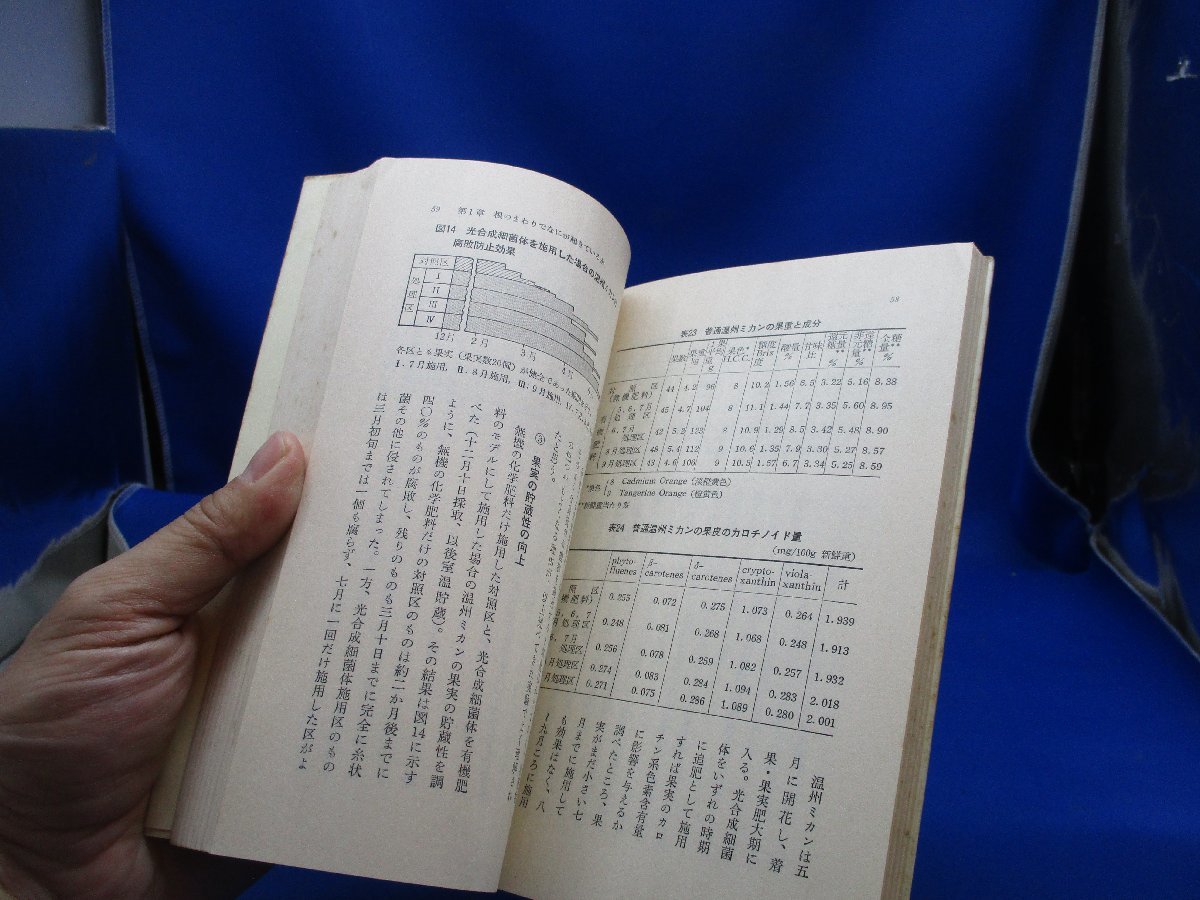 58
表23 普通温州ミカンの果重と成分
果数 果重 kg 1果平均重 g 果色* H.C.C. 糖度 Brix度 酸量 % 甘味比 還元糖量** % 非還元糖量** % 全糖量** %
対照区(無機肥料) 44 4.2 96 8 10.2 1.56 6.5 3.22 5.16 8.38
5,6,7月処理区 45 4.7 104 8 11.1 1.44 7.7 3.35 5.60 8.95
6,7月処理区 42 5.2 123 8 10.9 1.29 8.5 3.42 5.48 8.90
8月処理区 48 5.4 112 9 10.6 1.35 7.9 3.30 5.27 8.57
9月処理区 43 4.6 106 9 10.5 1.57 6.7 3.34 5.25 8.59
8 Cadmium Orange (淡橙黄色)
9 Tangerine Orange (橙黄色)
表24 普通温州ミカンの果皮のカロチノイド量
(mg/100g 新鮮重)
phyto-fluenes β-carotenes δ-carotenes crypto-xanthin viola-xanthin 計
0.255 0.072 0.275 1.073 0.264 1.939
0.248 0.081 0.268 1.068 0.248 1.913
6,7月処理区 0.256 0.078 0.259 1.082 0.257 1.932
月処理区 0.274 0.083 0.284 1.094 0.283 2.018
月処理区 0.271 0.075 0.286 1.089 0.280 2.001
温州ミカンは五
月に開花し、着
果・果実肥大期に
入る。光合成細菌
体をいずれの時期
に追肥として施用
すれば果実のカロ
チン系色素含有量
に影響を与えるか
調べたところ、果
実がまだ小さい七
月までに施用して
も効果はなく、八
、九月ころに施用
59 第1章 根のまわりでなにが起きているか
図14 光合成細菌体を施用した場合の温州ミカンの
腐敗防止効果
対照区
処理区 I II III IV
12月 2月 3月
各区とも果実(果実数26個)が
I.7月施用, II.8月施用, III.9月施用,
③ 果実の貯蔵性の向上
無機の化学肥料だけ施用した対照区と、光合成細菌体を有機肥
料のモデルにして施用した場合の温州ミカンの果実の貯蔵性を調
べた(十二月十日採取、以後室温貯蔵)。その結果は図14に示す
ように、無機の化学肥料だけの対照区のものは約二か月後までに
四〇%のものが腐敗し、残りのものも三月十日までに完全に糸状
菌その他に侵されてしまった。一方、光合成細菌体施用区のもの
は三月初旬までは一個も腐らず、七月に一回だけ施用した区がよ